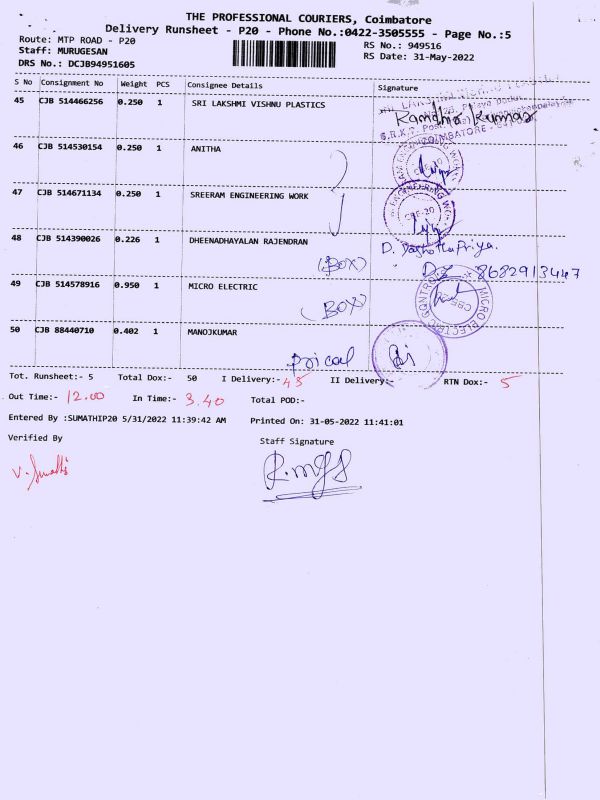 THE PROFESSIONAL COURIERS, Coimbatore
Delivery Runsheet - P20 - Phone No.:0422-3505555 - Page No.:5
Route: MTP ROAD - P20
RS No.: 949516
Staff: MURUGESAN
RS Date: 31-May-2022
DRS No.: DCJB94951605
S No Consignment No Weight PCS Consignee Details Signature
45 CJB 514466256 0.250 1 SRI LAKSHMI VISHNU PLASTICS
COIMBATORE
46 CJB 514530154 0.250 1 ANITHA
CBE-20
47 CJB 514671134 0.250 1 SREERAM ENGINEERING WORK
ENGINEERING WO
CBE-20
48 CJB 514390026 0.226 1 DHEENADHAYALAN RAJENDRAN
(BOX)
8682913447
49 CJB 514578916 0.950 1 MICRO ELECTRIC
(BOX)
MICRO ELECTRIC CONTROL
50 CJB 88440710 0.402 1 MANOJKUMAR
prical
Tot. Runsheet:- 5 Total Dox:- 50 I Delivery:- 45 II Delivery:- RTN Dox:- 5
Out Time:- 12.00 In Time:- 3.40 Total POD:-
Entered By :SUMATHIP20 5/31/2022 11:39:42 AM Printed On: 31-05-2022 11:41:01
Verified By
Staff Signature
V. Sumathi